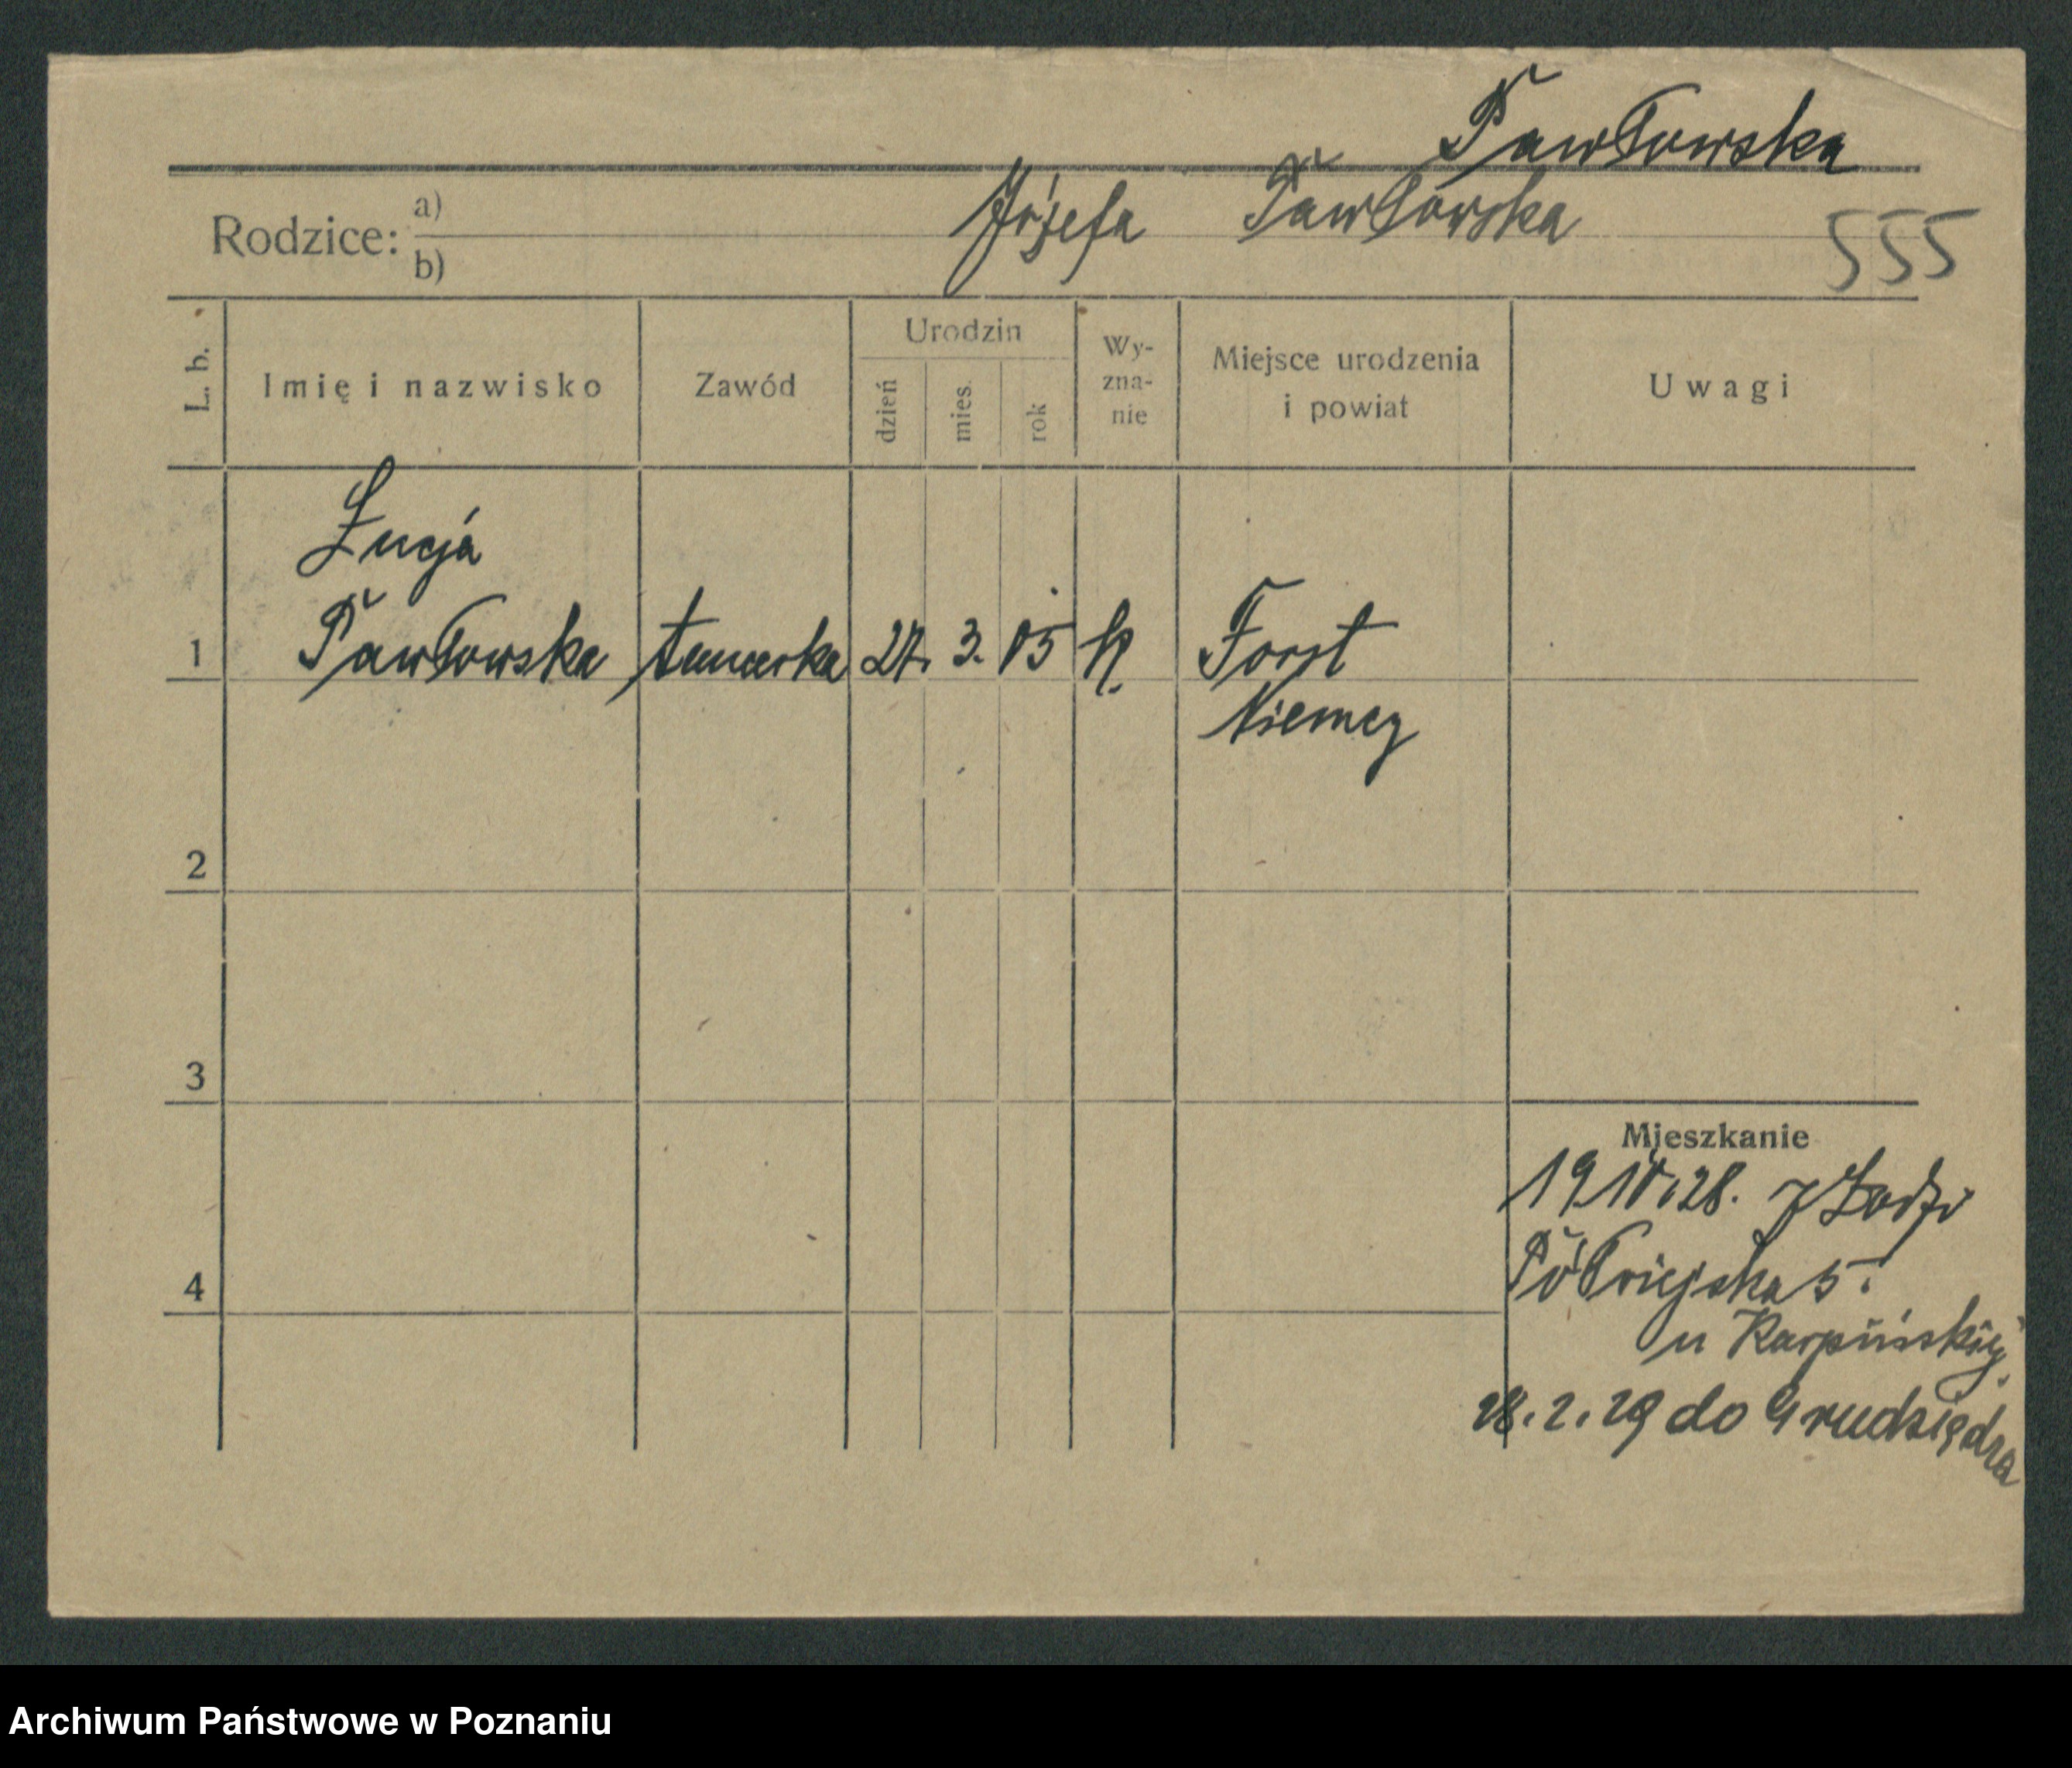 Pawłowska
Rodzice: a) b)
Józefa Pawłowska
555
L. b.
Imię i nazwisko
Zawód
Urodzin
dzień
mies.
rok
Wy-
zna-
nie
Miejsce urodzenia
i powiat
Uwagi
Łucja
1 Pawłowska tancerka 27. 3. 05 k. Forst
Niemcy
2
3
4
Mieszkanie
z Łodzi
Półwiejska 5.
u Karpińskiej.
28.2.29 do Grudziądza
Archiwum Państwowe w Poznaniu